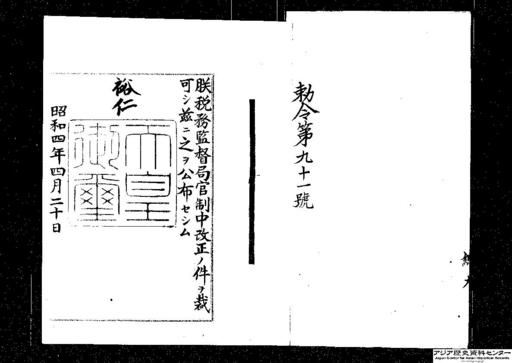 勅令第九十一號
朕税務監督局官制中改正ノ件ヲ裁
可シ玆ニ之ヲ公布セシム
裕仁
天皇
御璽
昭和四年四月二十日
アジア歴史資料センター
Japan Center for Asian Historical Records